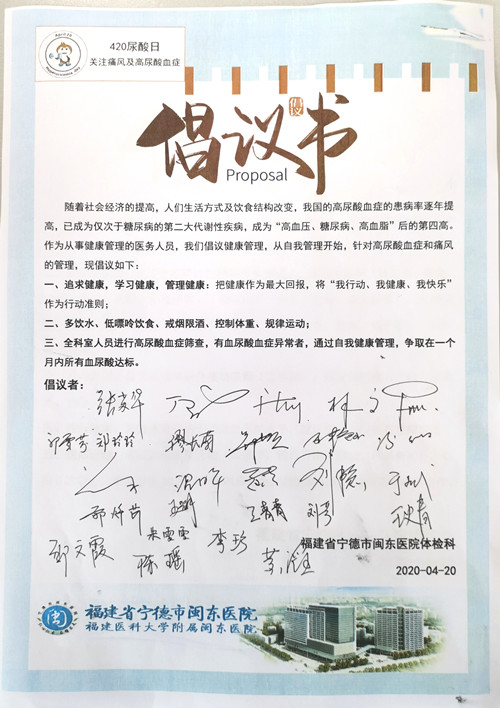 420尿酸日
关注痛风及高尿酸血症
倡议书
倡议
Proposal
随着社会经济的提高，人们生活方式及饮食结构改变，我国的高尿酸血症的患病率逐年提
高，已成为仅次于糖尿病的第二大代谢性疾病，成为“高血压、糖尿病、高血脂”后的第四高。
作为从事健康管理的医务人员，我们倡议健康管理，从自我管理开始，针对高尿酸血症和痛风
的管理，现倡议如下：
一、追求健康，学习健康，管理健康：把健康作为最大回报，将“我行动、我健康、我快乐”
作为行动准则；
二、多饮水、低嘌呤饮食、戒烟限酒、控制体重、规律运动；
三、全科室人员进行高尿酸血症筛查，有血尿酸血症异常者，通过自我健康管理，争取在一个
月内所有血尿酸达标。
倡议者：
刘
郑文霞
陈瑶
李珍
福建省宁德市闽东医院体检科
2020-04-20
福建省宁德市闽东医院
福建医科大学附属闽东医院